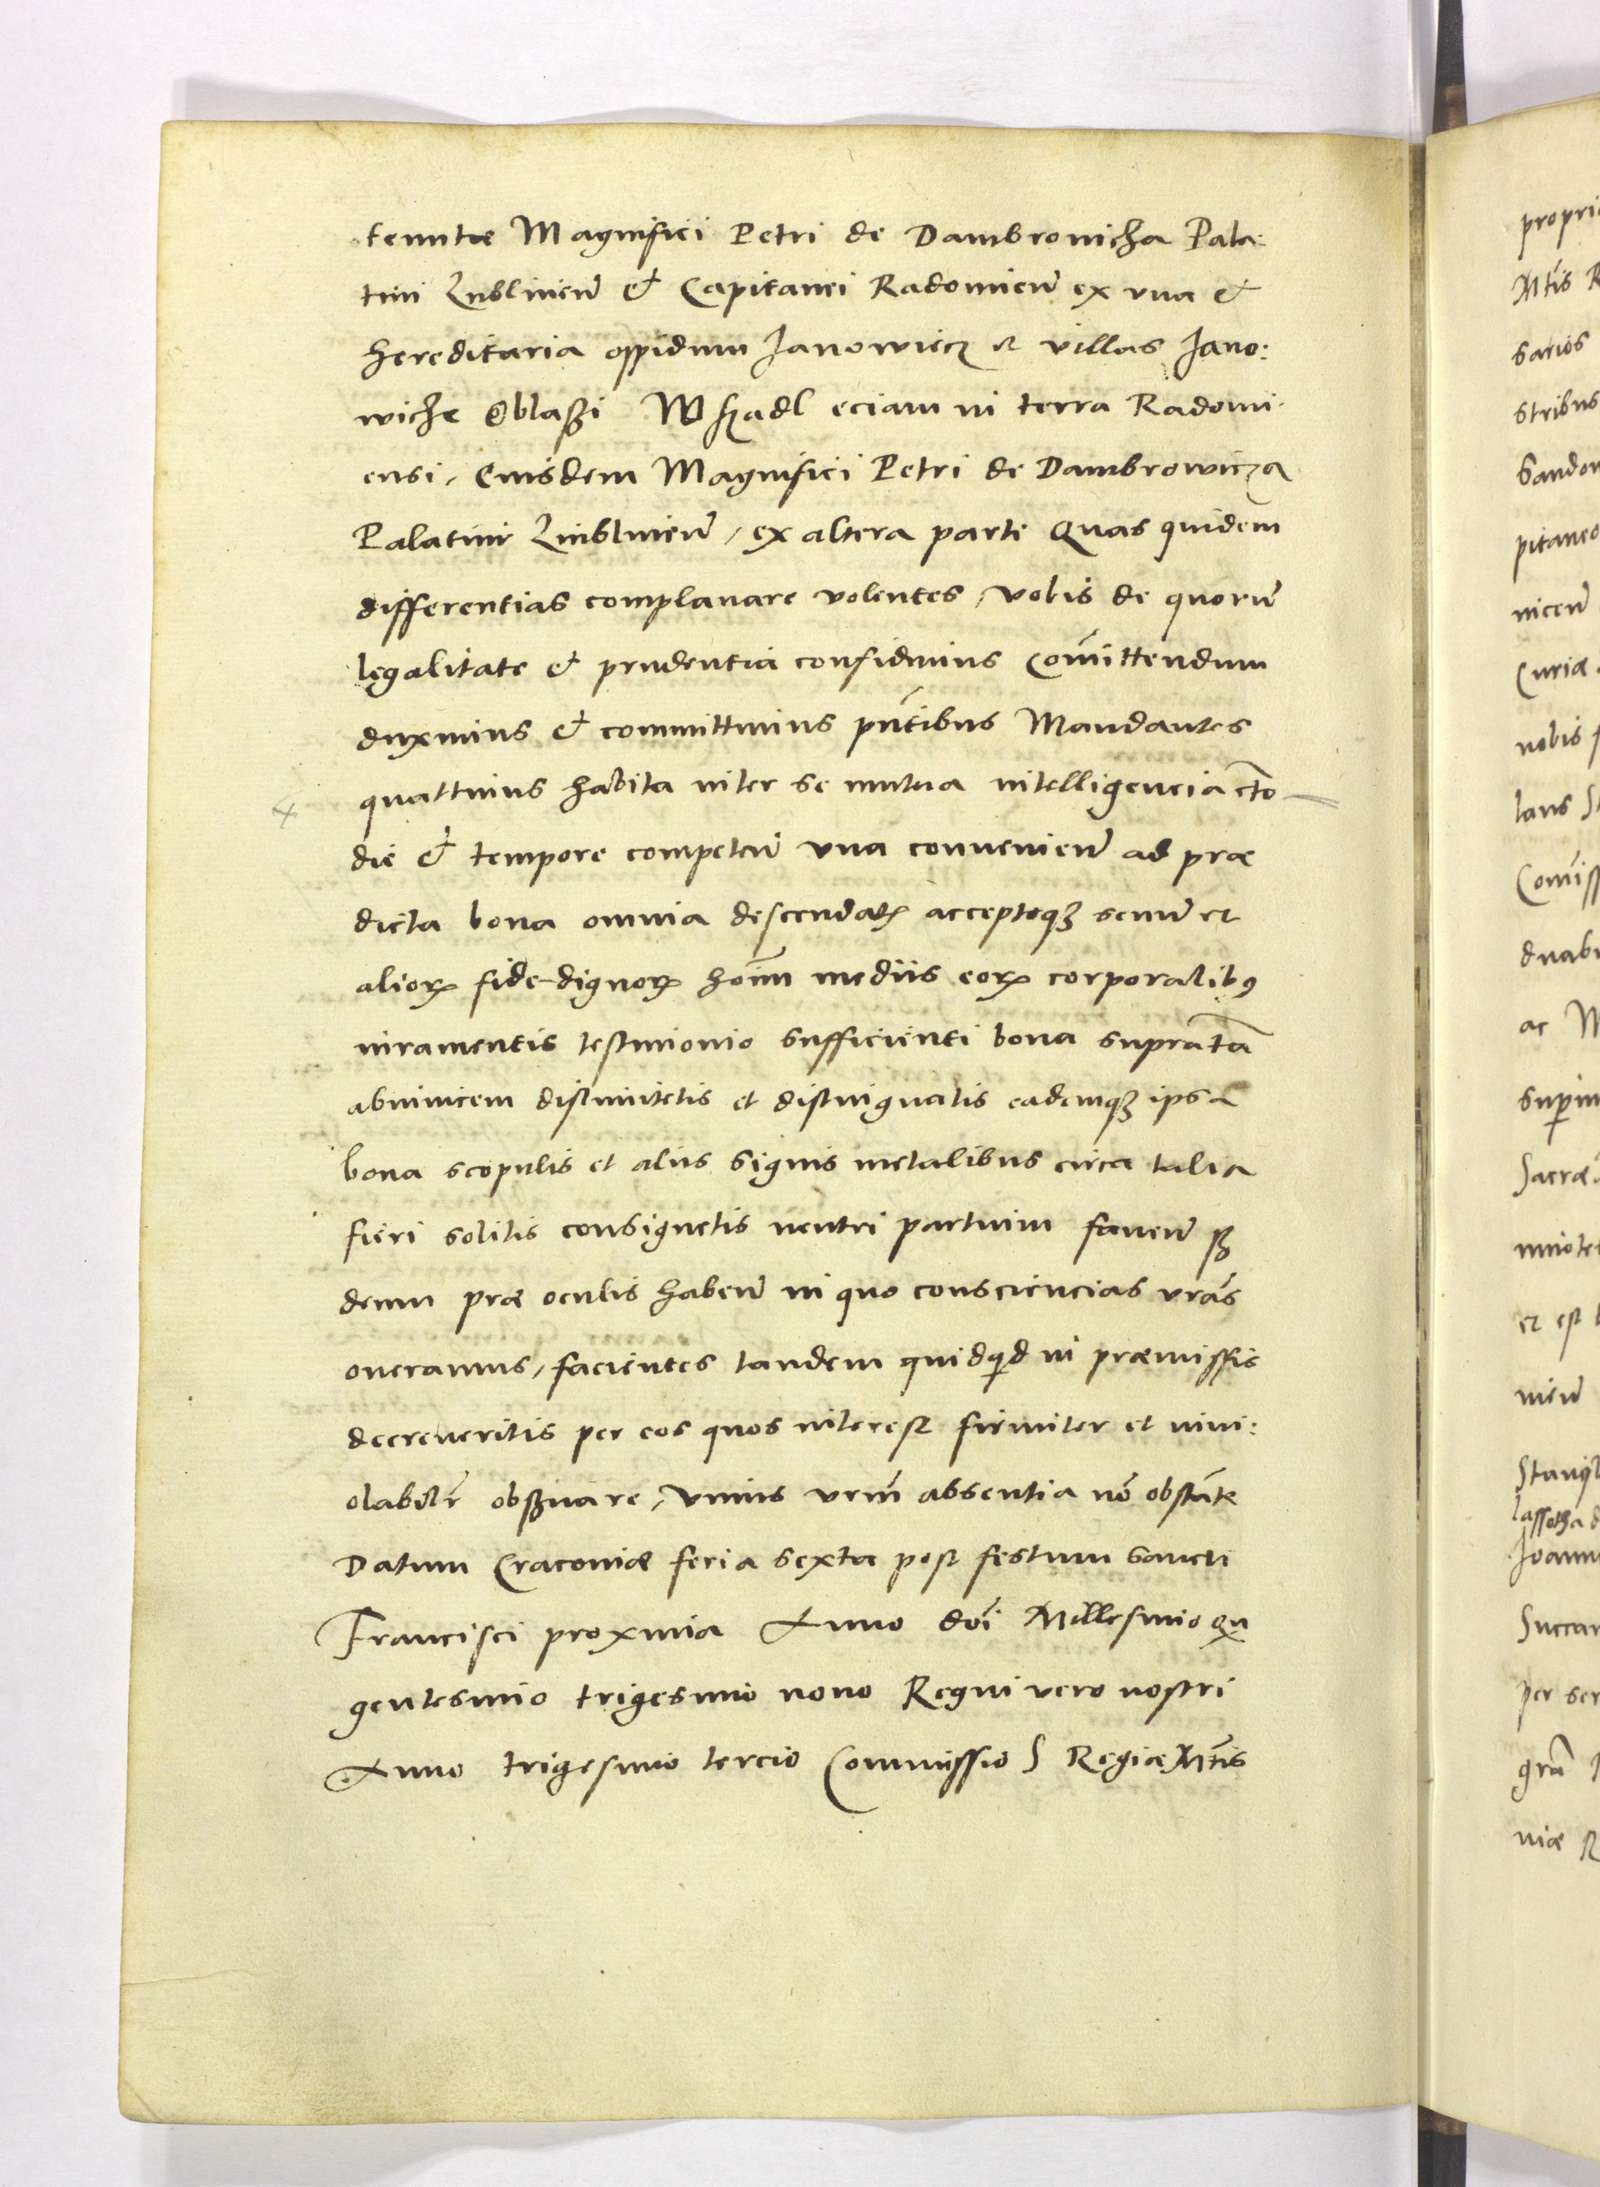 tenutæ Magnifici Petri de Dambrowicza Pala:
tini Lublineñ & Capitanei Radomieñ ex vna &
hereditaria oppidum Janowiecz et villas Jano:
wicze Oblaßi eciam in terra Radomi
ensi, Eiusdem Magnifici Petri de Dambrowicza
Palatini Lublineñ, ex altera parte Quas quidem
differentias complanare volentes, vobis de quorũ
legalitate & prudentia confidimus Com̃ittendum
duximus & committimus pñtibus Mandantes
quattinus habita inter se mutua intelligencia cto
die & tempore competeñ vna convenieñ ad præ
dicta bona omnia descendatꝭ acceptoqꝫ semũ et
alioꝝ fide-dignoꝝ hom̃ mediis eoꝝ corporalibꝰ
iuramentis testimonio sufficienti bona supra ̃ta
abinvicem distinitetis et distinguatis eademqꝫ ipsa
bona scopulis et aliis signis metalibus circa talia
fieri solitis consignetis neutri partium faveñ ß
deum præ oculis habeñ in quo consciencias vrãs
oneramus, facientes tandem quidqͥd in præmissis
decreveritis per eos quos interest firmiter et invi:
olabilr̃ obßuare, Vnius vrm̃ absentia nõ obstãte
Datum Cracoviæ feria sexta post festum sancti
Francisci proxima Anno dñi Millesimo qu
gentesimo trigesimo nono Regni vero nostri
Anno trigesimo tercio Commissio S Regiæ Mtĩs
propri
Mtĩs R
sarios
stribus
Sandom
pitaneo
niceñ
Curiæ
nobis
laus S
Comiss
duab
ac M
Sup̱in
Sacræ
nieñ
et est
Joann
Succa
per ser
grã
niæ R